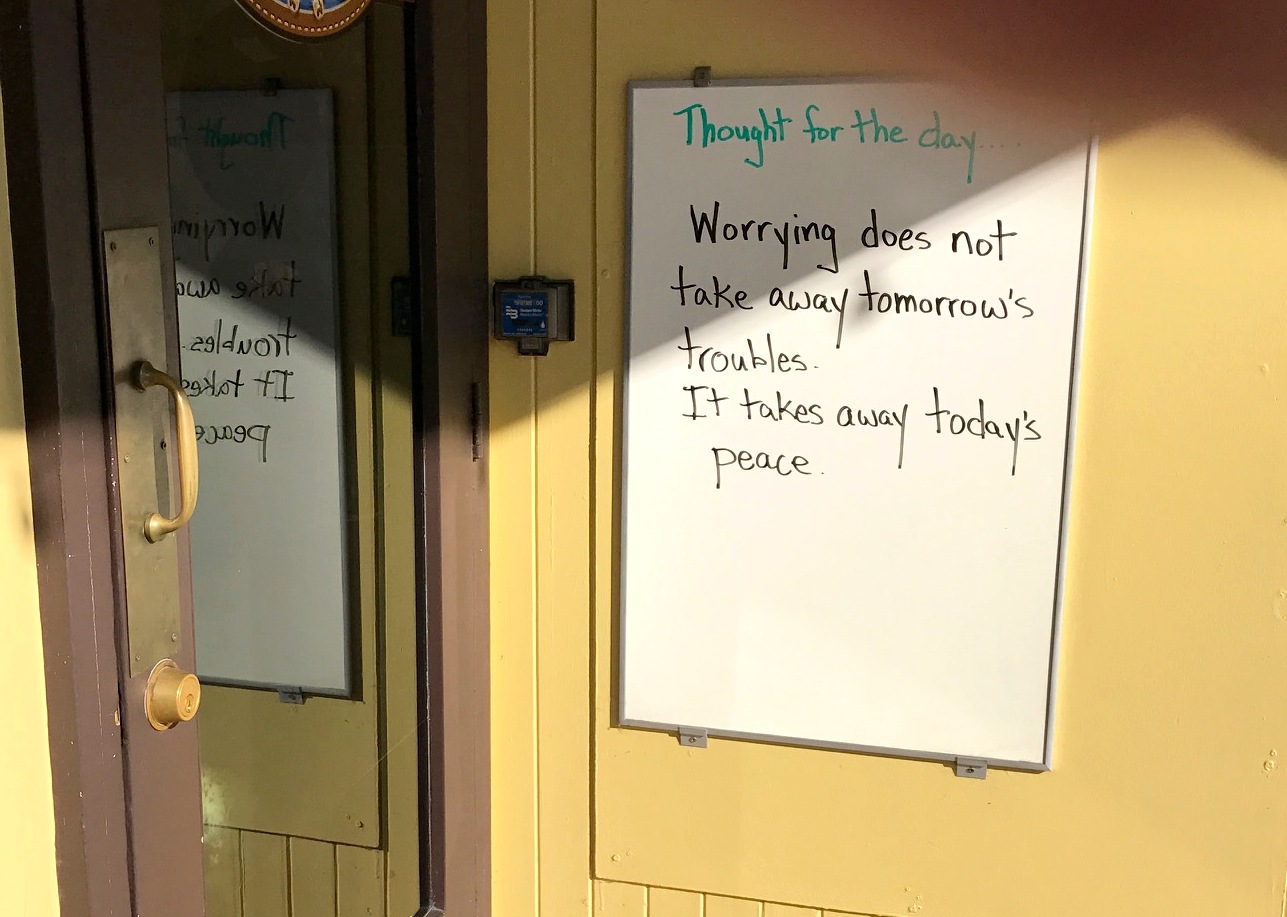 Thought for the day....
Worrying does not
take away tomorrow's
troubles.
It takes away today's
peace.